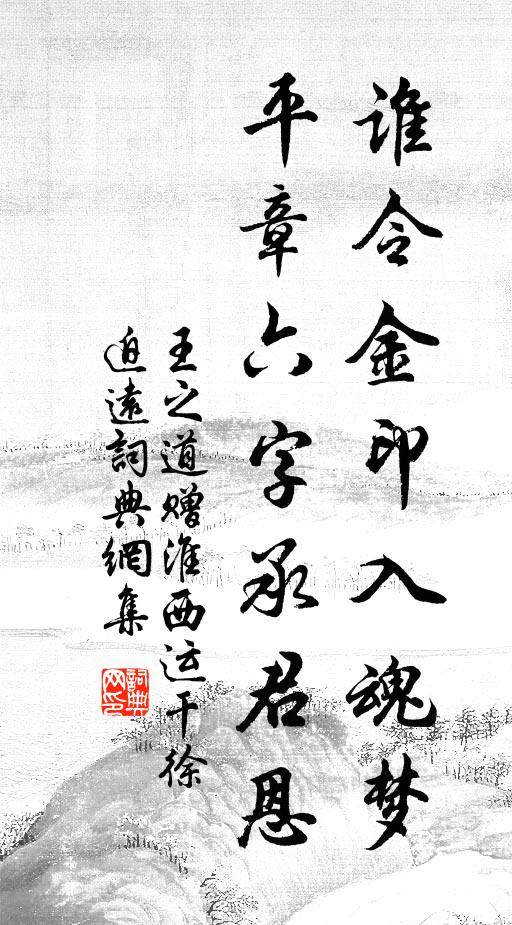 谁令金印入魂梦
平章六字承君恩
王之道赠淮西运干徐
迩遠詞典網集
詞典
网印